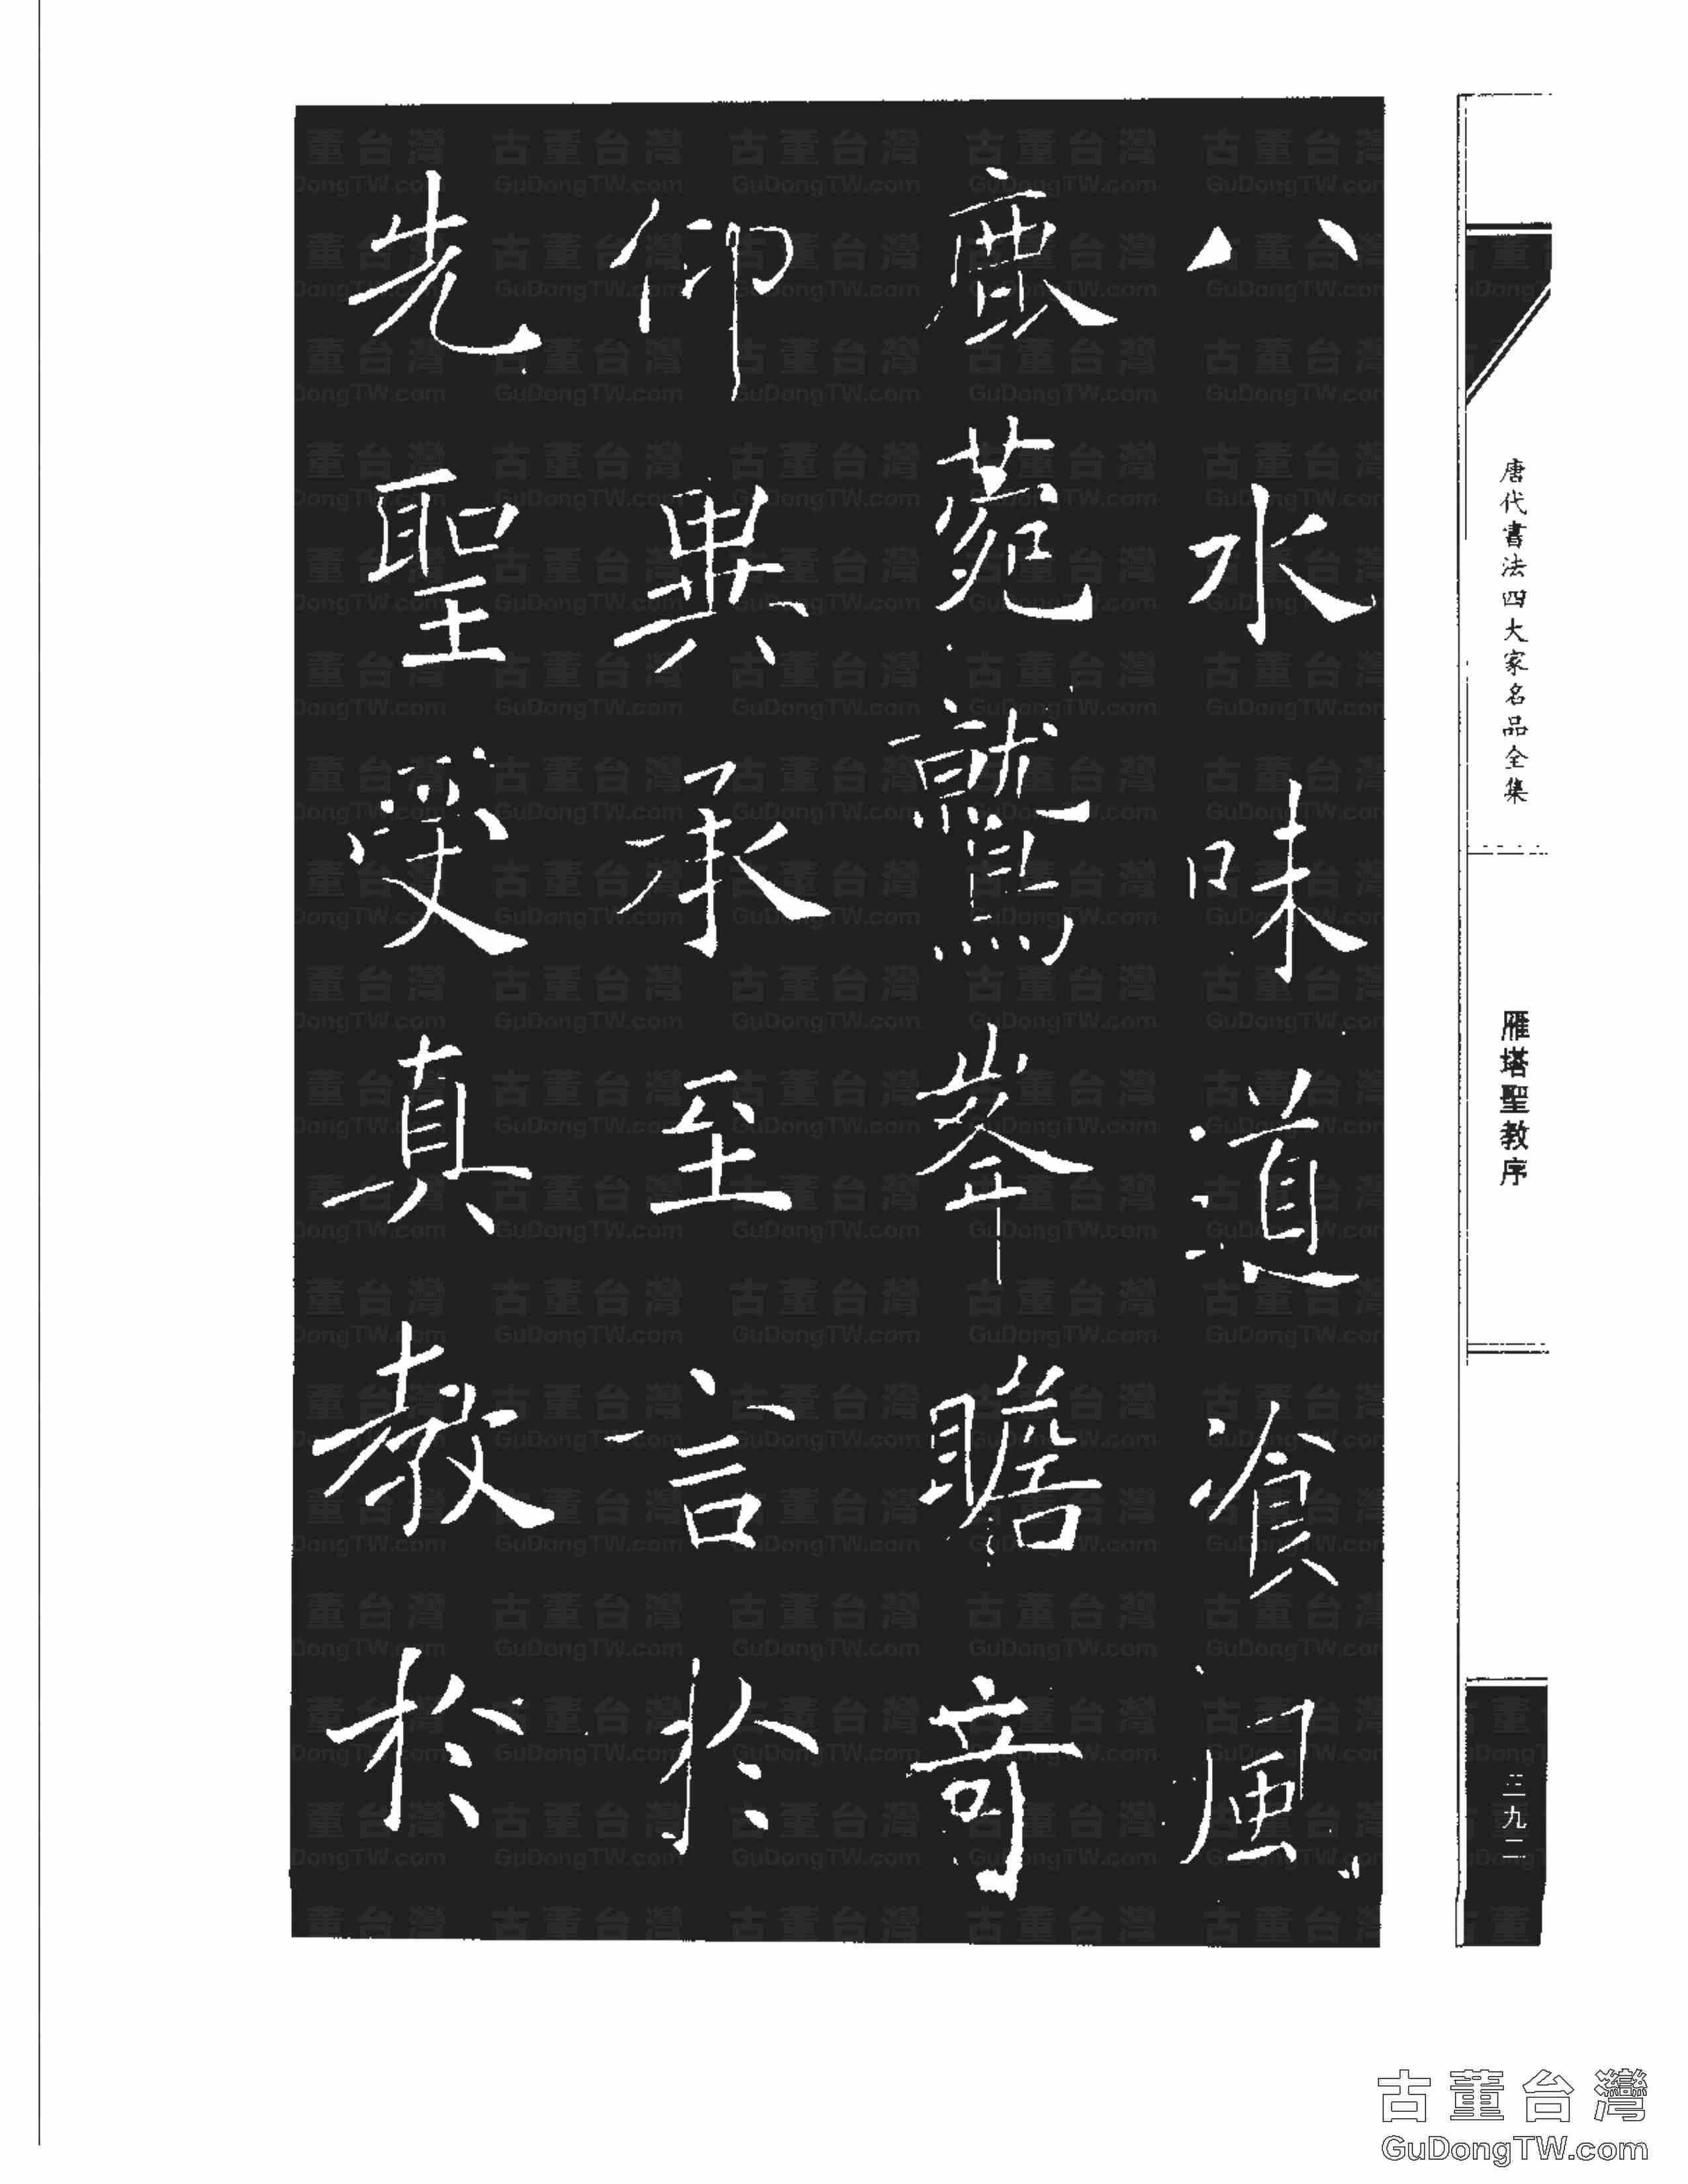 唐代書法四大家名品全集
雁塔聖教序
三九二
八水味道飡風
鹿菀鷲峯瞻奇
仰異承至言於
先聖受真教於
古董台灣
GuDongTW.com